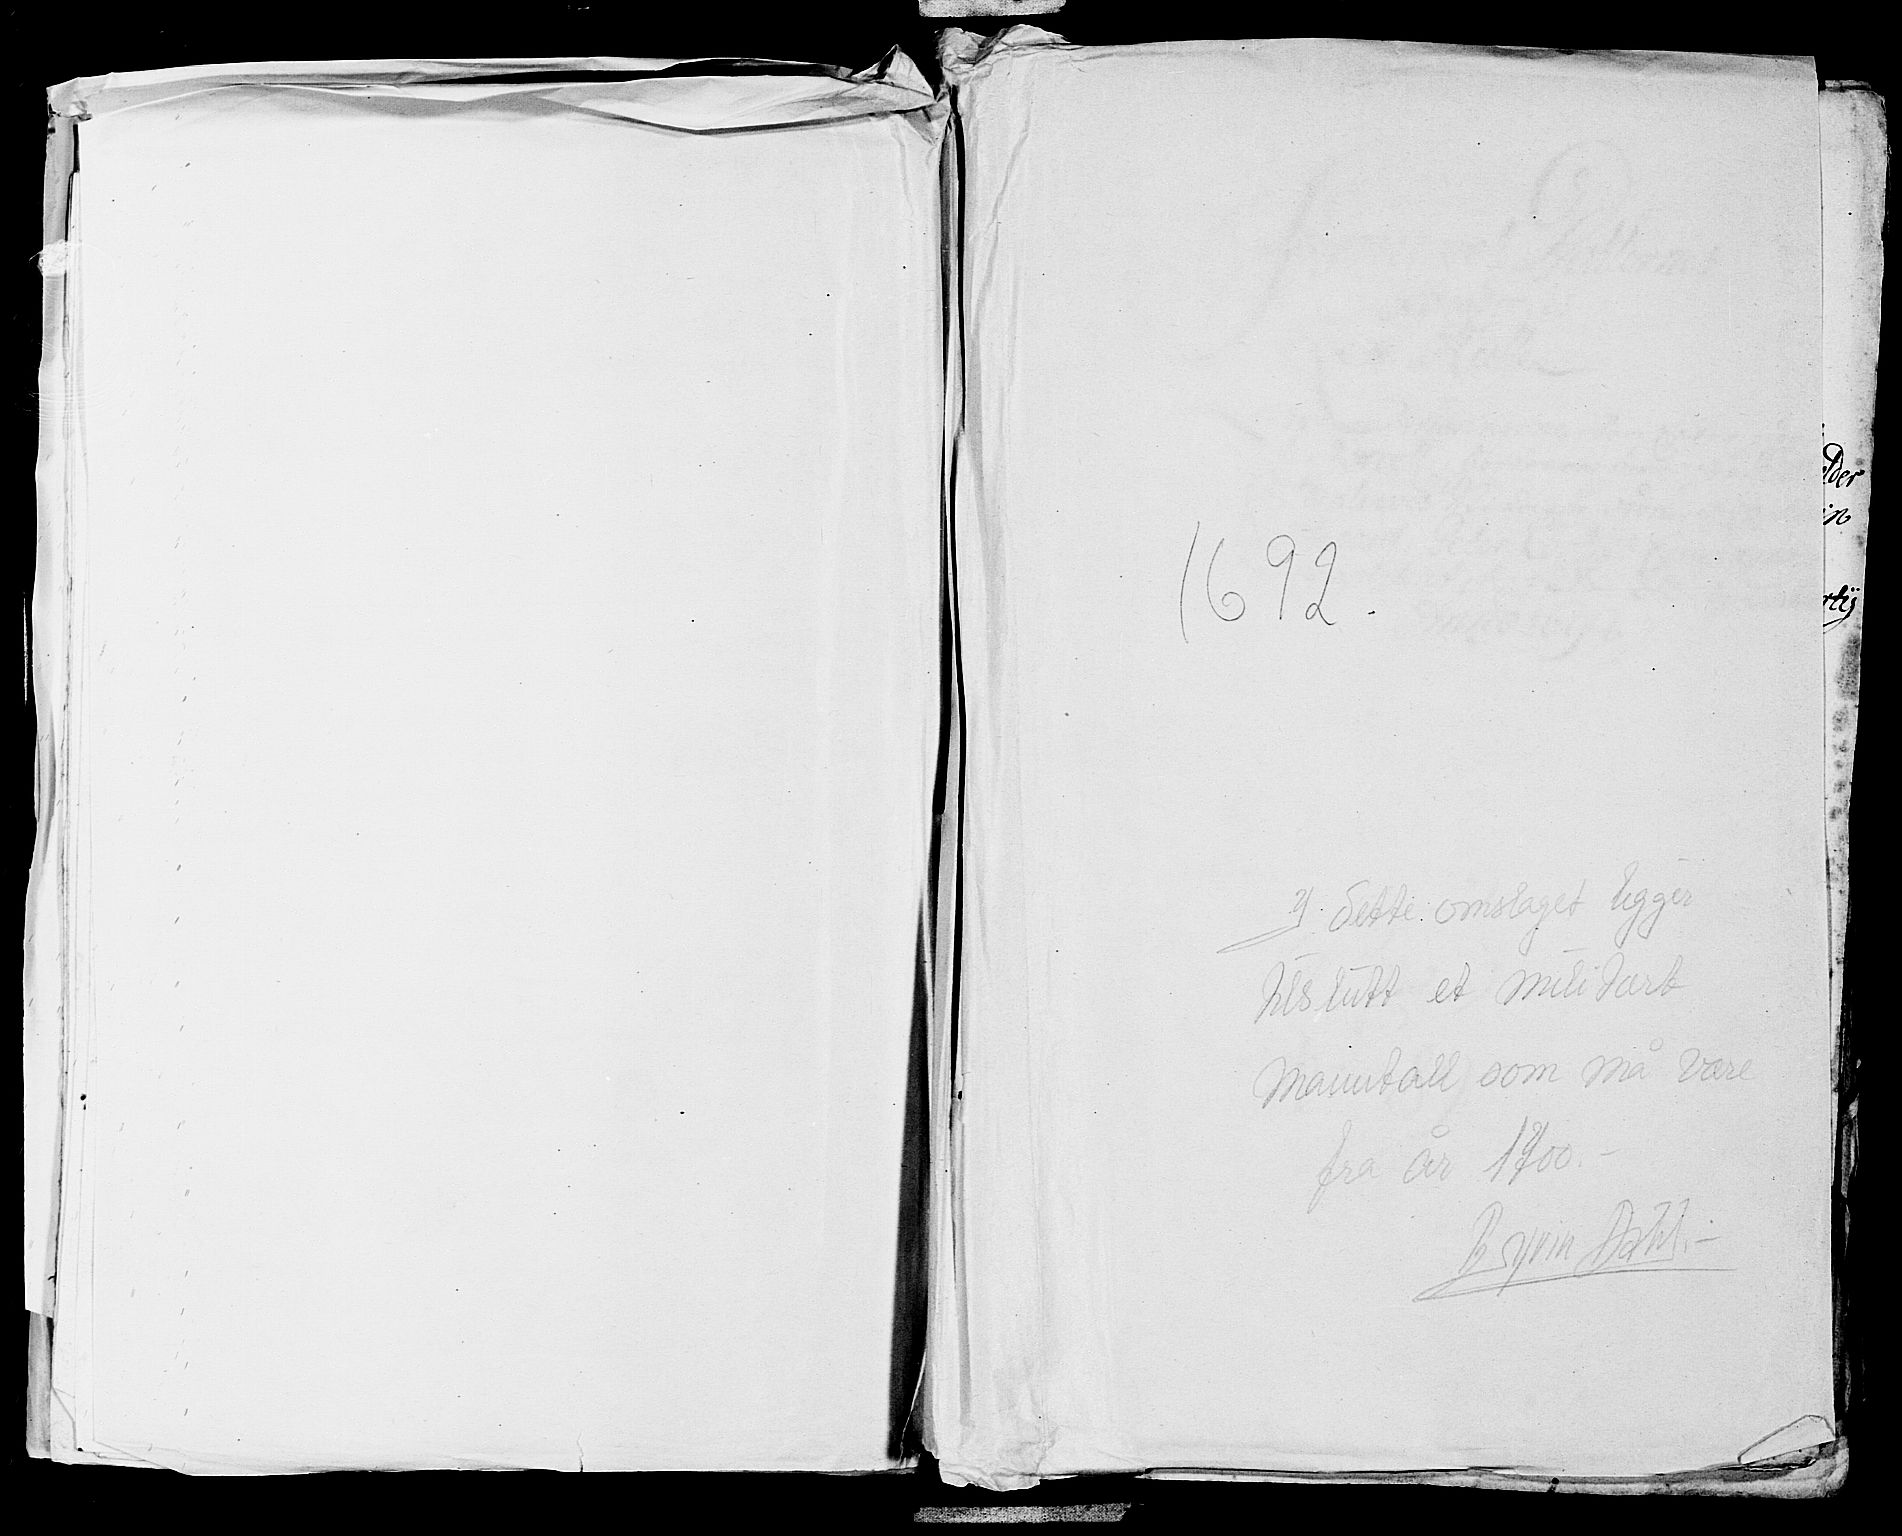 1692.
I dette omslaget ligger
tilslutt et militært
manntall som må være
fra år 1700.-
Dahl.-
lder
in
rtij